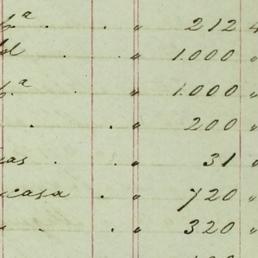 fª . . " 212 4
" 1.000 "
fª . . " 1.000 "
. . " 200 "
as . . " 31 "
casa . . " 720 "
. . " 320 "